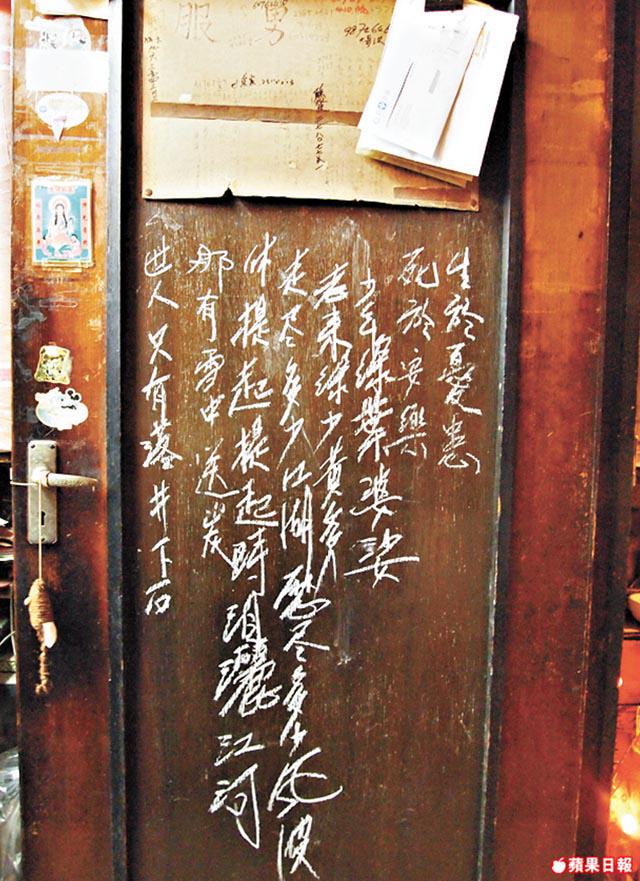 男
服
生於憂患
死於安樂
当年綠葉婆娑
老來綠少黃多
走尽多少江湖歷尽多少風波
休提起提起時泪灑江河
那有雪中送炭
世人只有落井下石
蘋果日報